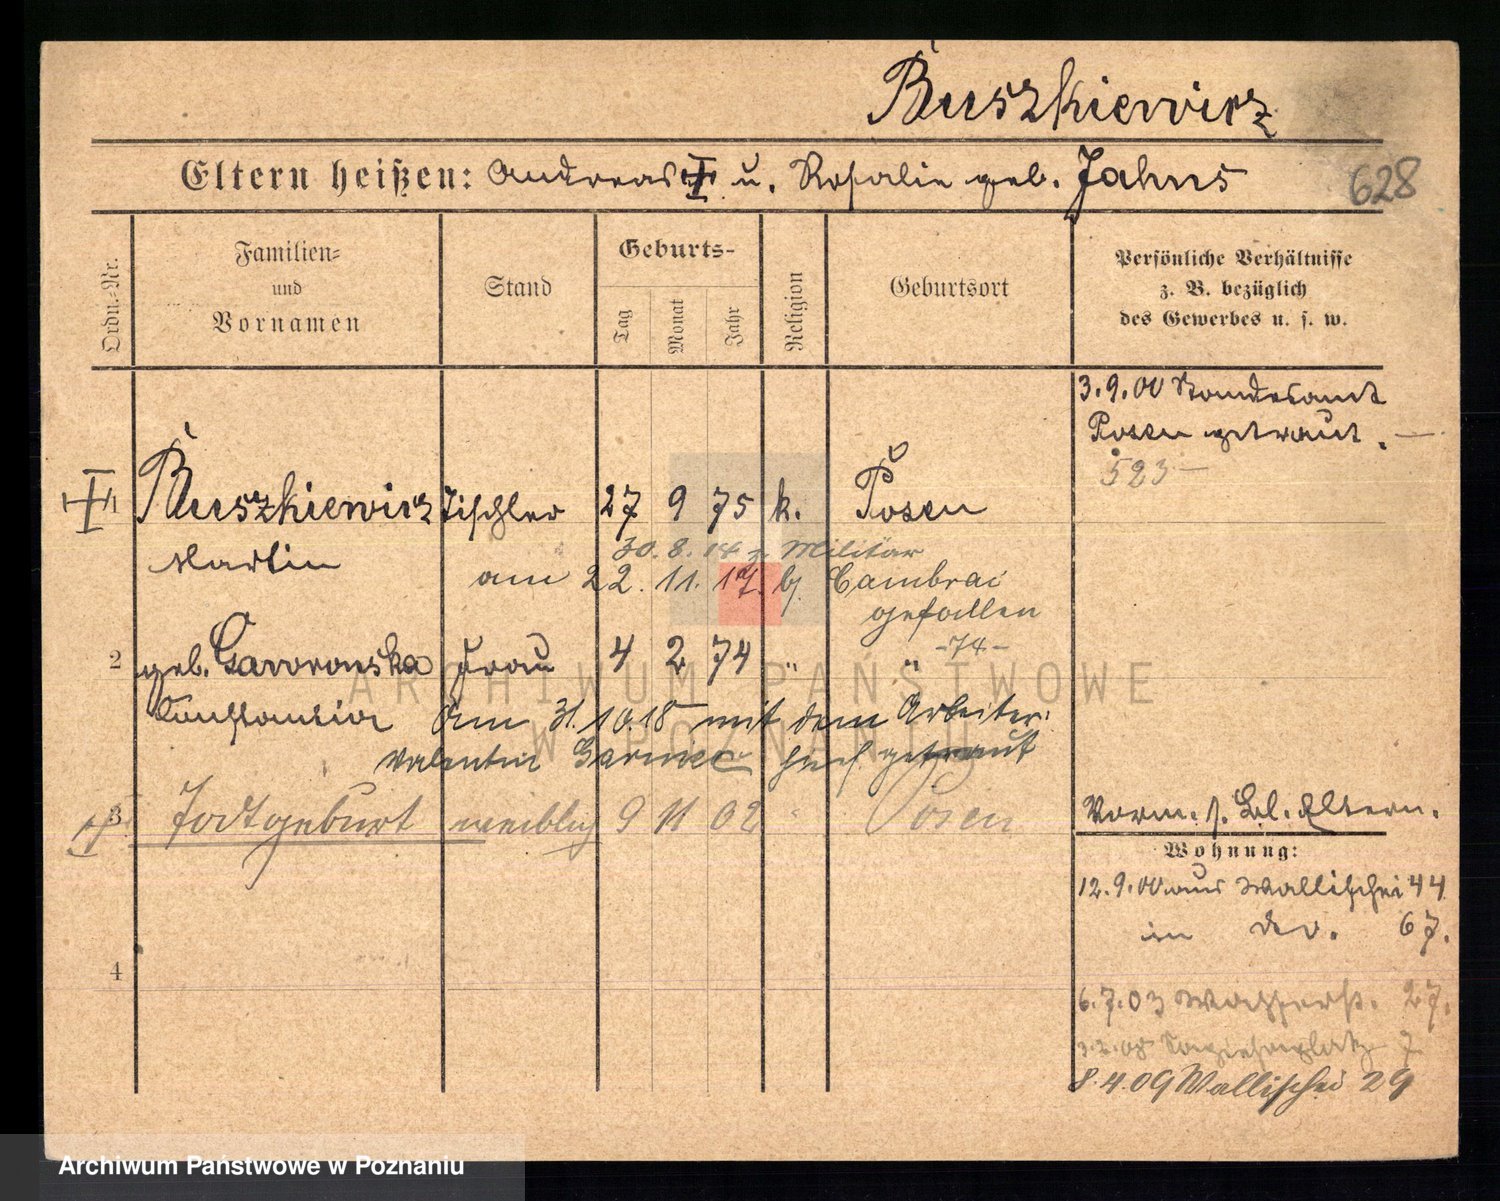 Buszkiewicz
Eltern heißen: Andreas u. Rosalie geb. Jahns
628
Ordn.-Nr.
Familien-
und
Vornamen
Stand
Geburts-
Tag
Monat
Jahr
Religion
Geburtsort
Persönliche Verhältnisse
z. B. bezüglich
des Gewerbes u. s. w.
3.9.00 Standesamt
Posen getraut.
523
1 Buszkiewicz Tischler 27 9 75 k. Posen
Martin
30.8.14 z. Militär
am 22.11.17. b/ Cambrai
gefallen
-74-
2 geb. Gaworowska Frau 4 2 74 " "
Constantia
Am 31.10.18 mit dem Arbeiter
Valentin hies. getraut
3 Todtgeburt weiblich 9 11 02 " Posen
Vorm. s. Bl. Eltern.
Wohnung:
12.9.00 aus Wallischei 44
in do. 67.
4
6.7.03 Wasserst. 27.
3.2.08 7
8.4.09 Wallischei 29
ARCHIWUM PAŃSTWOWE
W POZNANIU
Archiwum Państwowe w Poznaniu